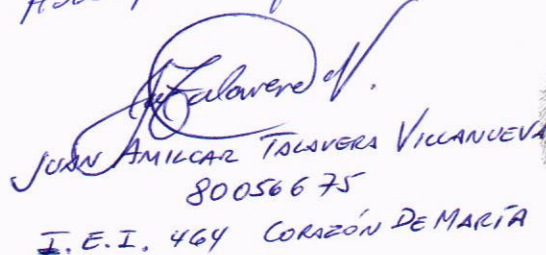 JUAN AMILCAR TALAVERA VILLANUEVA
80056675
I.E.I. 464 CORAZÓN DE MARÍA